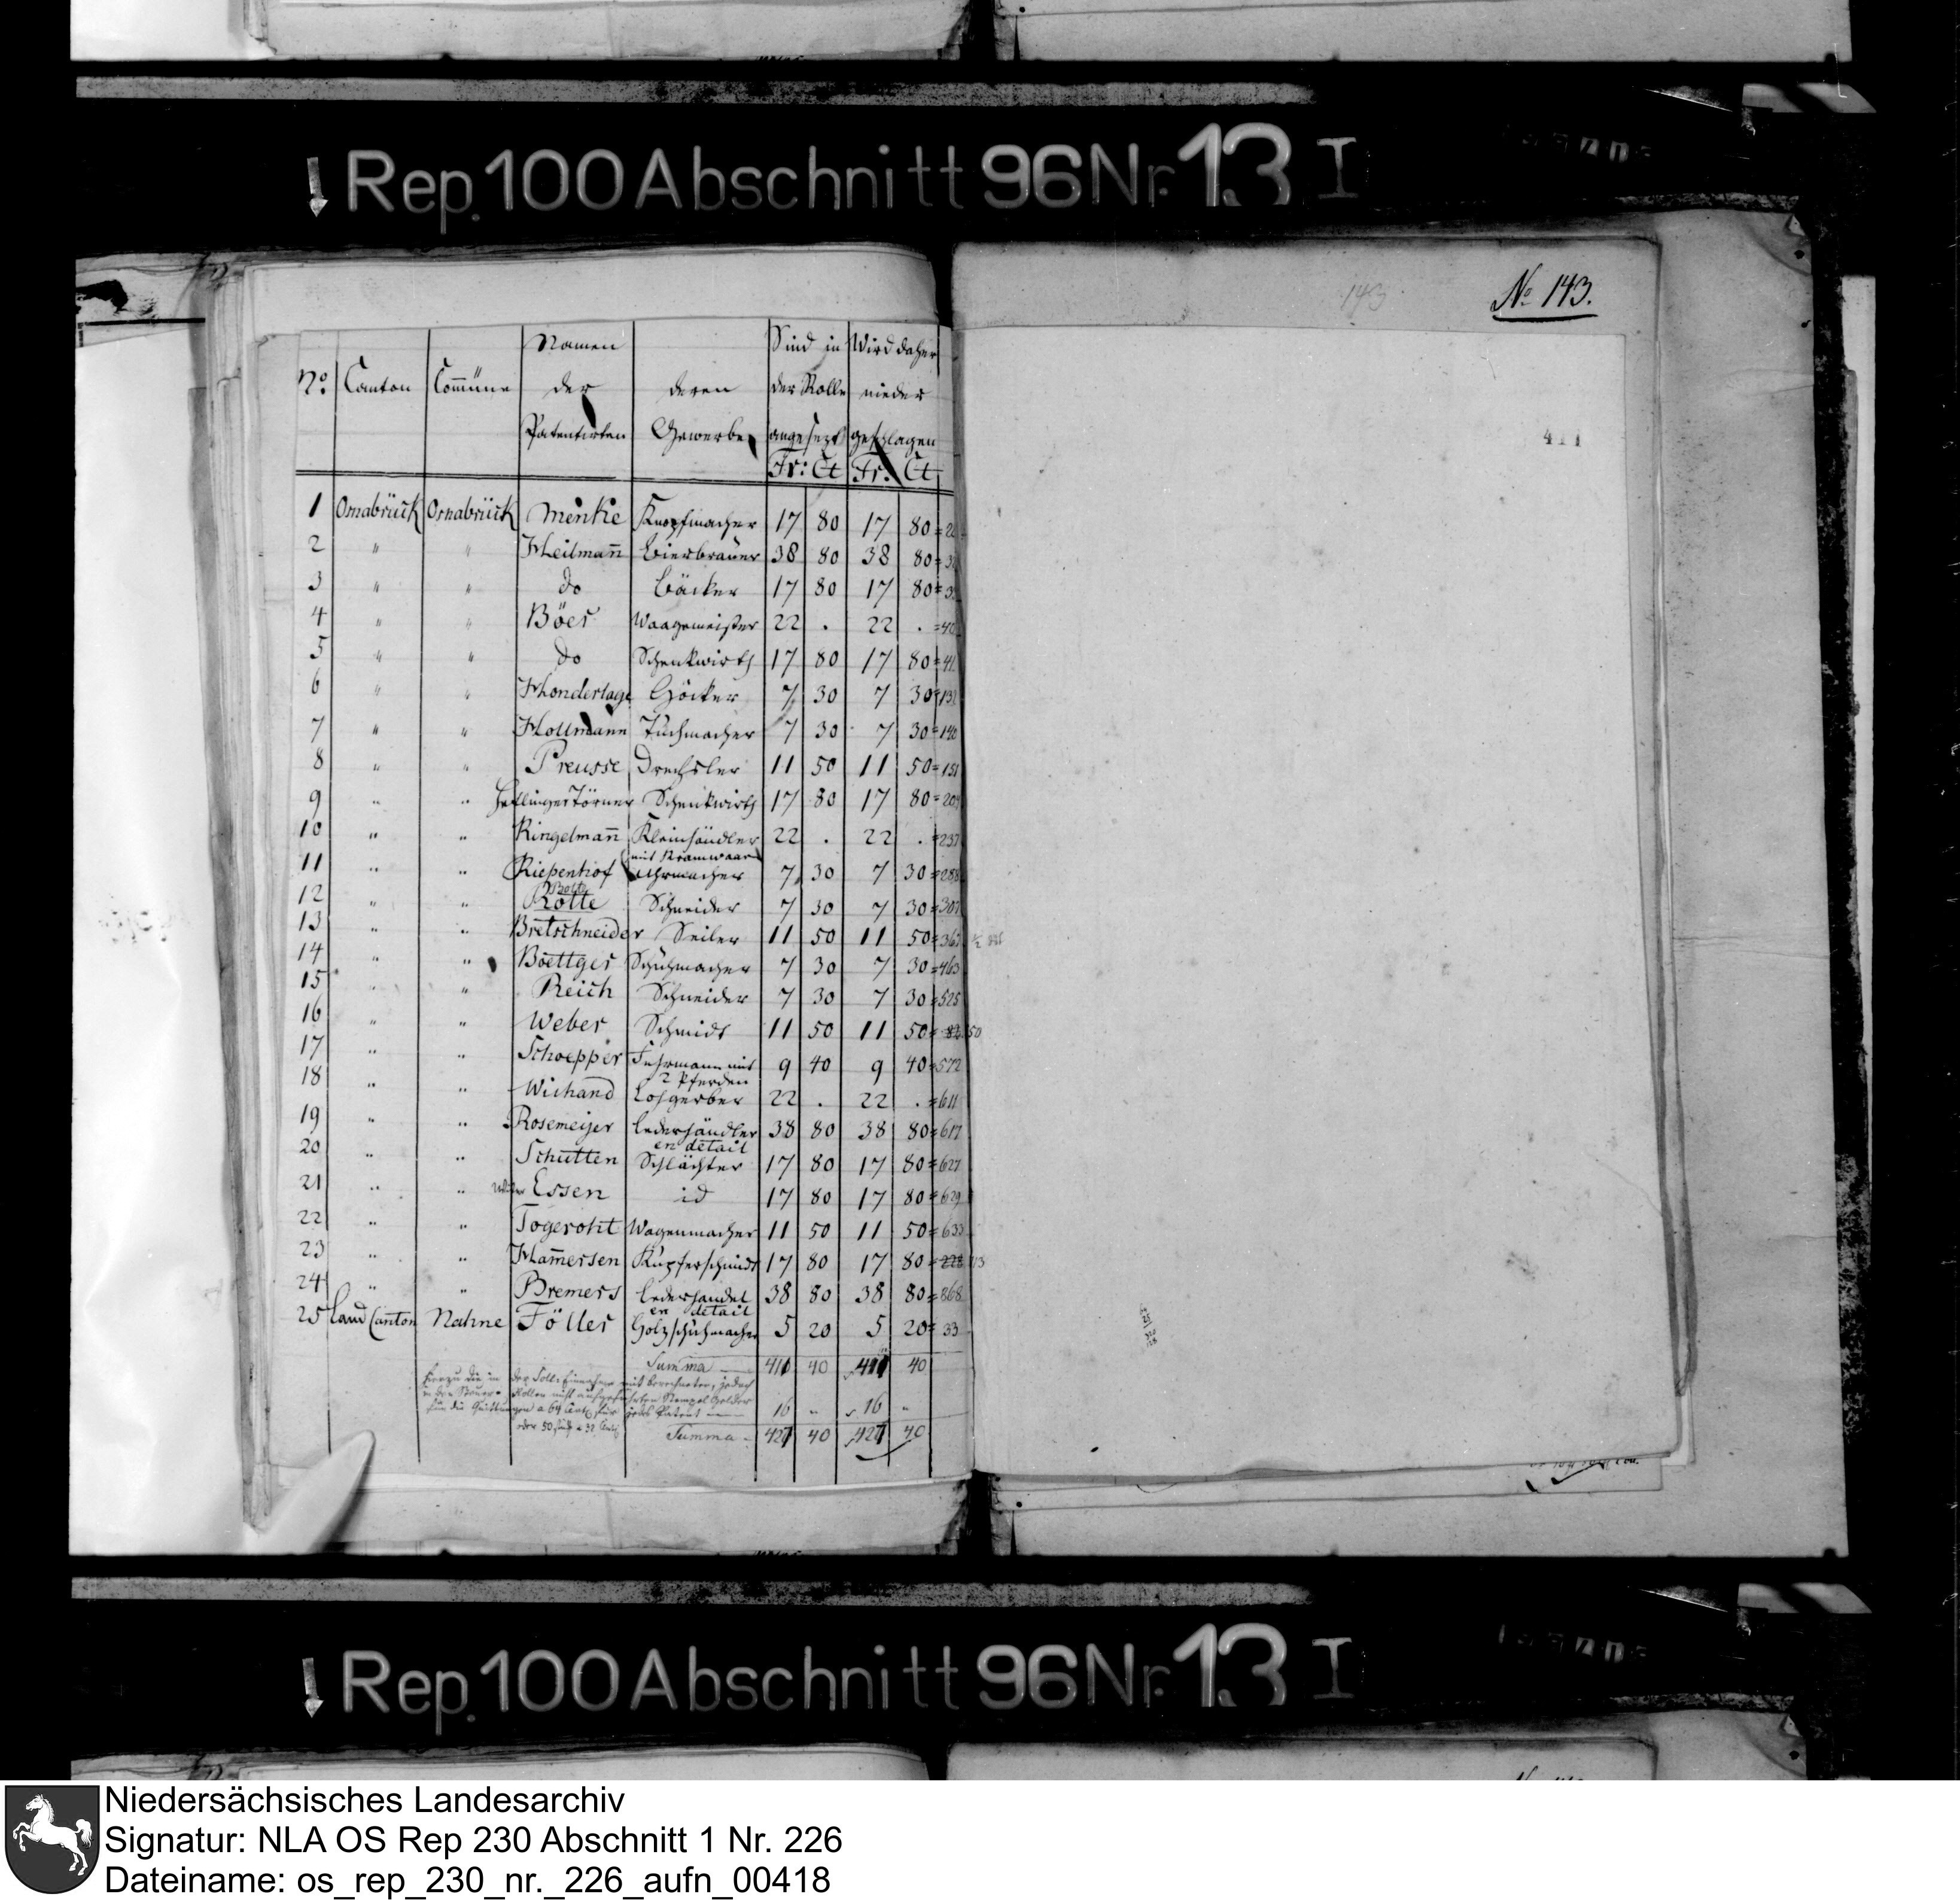 Rep. 100 Abschnitt 96 Nr. 13 I
No 143.
143
411
No. Canton Commüne Namen der Patentirten deren Gewerbe Sind in der Rolle angesezt Wird daher nieder geschlagen
Fr: Ct Fr: Ct
1 Osnabrück Osnabrück Menke Knopfmacher 17 80 17 80
2 " " Heilmann Bierbrauer 38 80 38 80
3 " " do Bäcker 17 80 17 80
4 " " Böer Waagemeister 22 . 22 .
5 " " do Schenkwirth 17 80 17 80
6 " " Honderlage Höcker 7 30 7 30
7 " " Hollmann Tuchmacher 7 30 7 30 =140
8 " " Preusse Drechsler 11 50 11 50 =151
9 " " Törner Schenkwirth 17 80 17 80
10 " " Ringelmann Kleinhändler mit Kramwaar 22 . 22 . =237
11 " " Riepenhof Uhrmacher 7 30 7 30 =288
12 " " Rotte Schneider 7 30 7 30 =307
13 " " Bretschneider Seiler 11 50 11 50
14 " " Boettger Schuhmacher 7 30 7 30 =463
15 " " Reich Schneider 7 30 7 30 =525
16 " " Weber Schmidt 11 50 11 50
17 " " Schoepper Fuhrmann mit 2 Pferden 9 40 9 40 =572
18 " " Wichand Lohgerber 22 . 22 . =611
19 " " Rosemeijer Lederhändler en detail 38 80 38 80 =617
20 " " Schutten Schlächter 17 80 17 80 =627
21 " " Essen id 17 80 17 80 =629
22 " " Togeroht Wagenmacher 11 50 11 50 =633
23 " " Hamersen Kupferschmidt 17 80 17 80
24 " " Bremers Lederhandel en detail 38 80 38 80 =868
25 Land Canton Nahne Föller Holzschuhmacher 5 20 5 20 =33
Summa 411 40 411 40
hierzu die in der Soll-Einnahme mit berechneten, jedoch
in den Steuer-Rollen nicht aufgeführten Stempel Gelder
für die Quittungen a 64 Cent für jedes Patent 16 " 16 "
oder 50 a 32 Cent
Summa 427 40 427 40
Rep. 100 Abschnitt 96 Nr. 13 I
Niedersächsisches Landesarchiv
Signatur: NLA OS Rep 230 Abschnitt 1 Nr. 226
Dateiname: os_rep_230_nr._226_aufn_00418